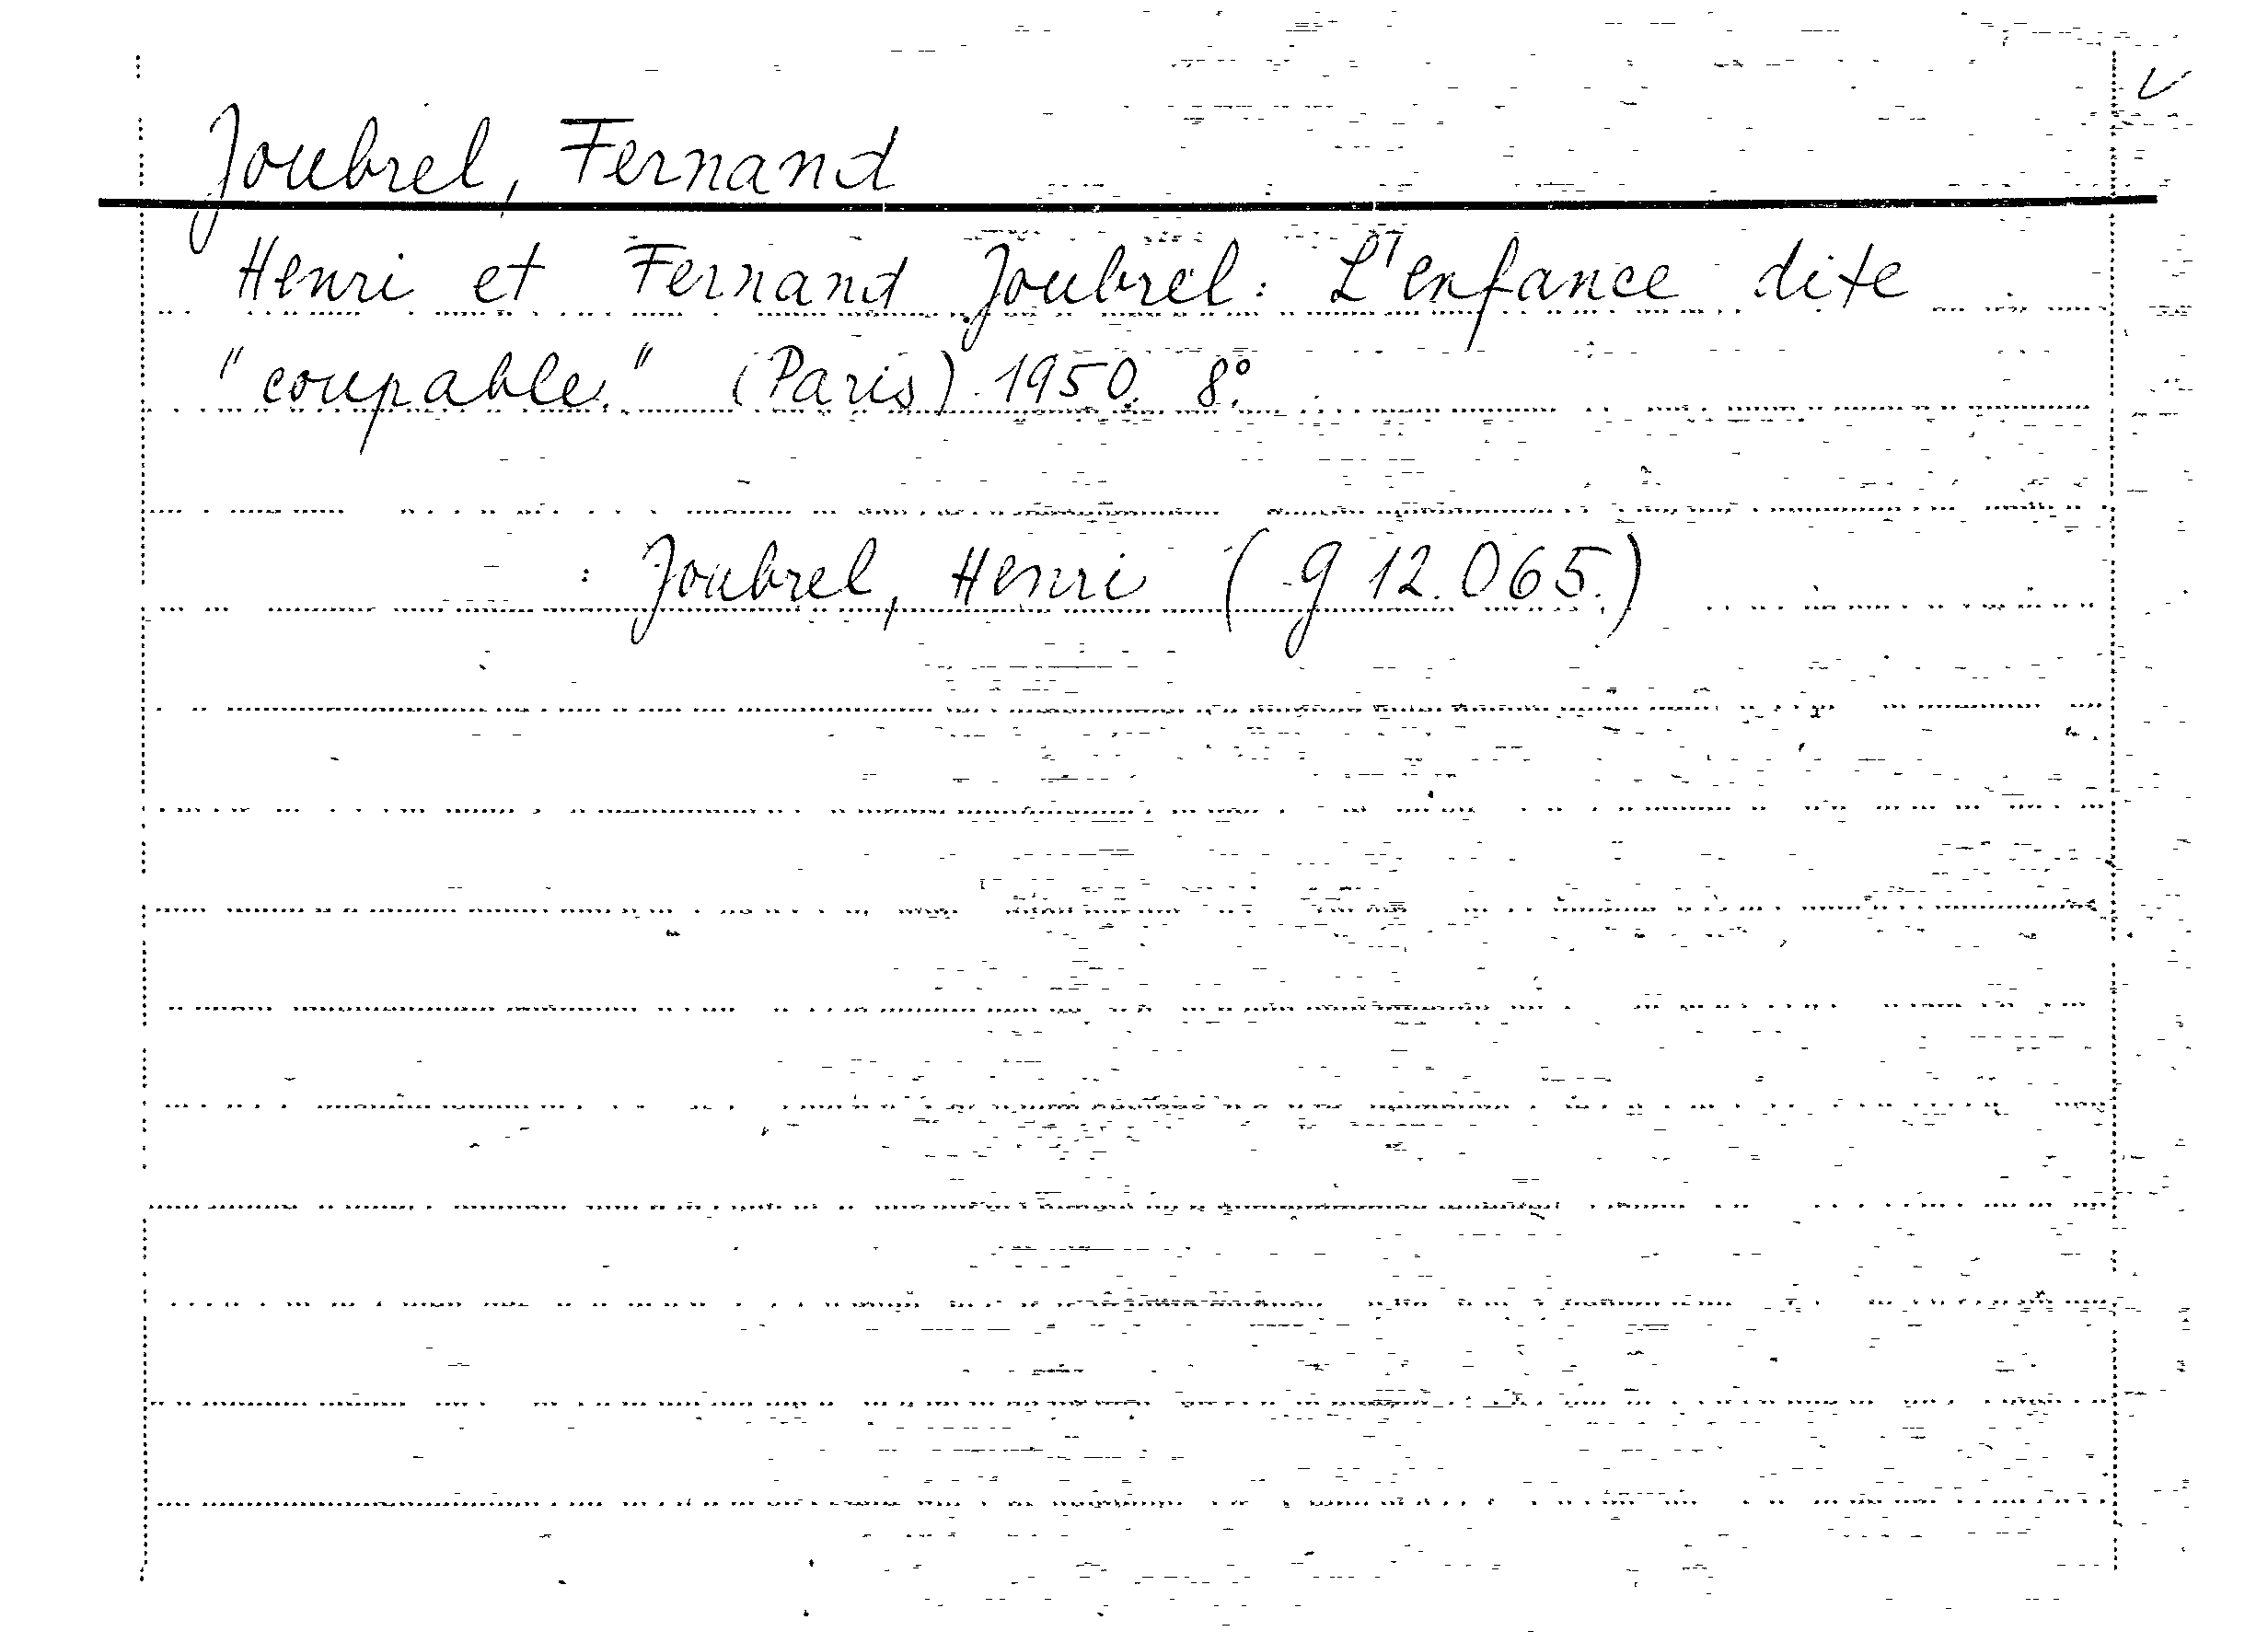 Joubrel, Fernand
Henri et Fernand Joubrel: L'enfance dite
"coupable." (Paris) 1950. 8°.
: Joubrel, Henri (g 12.065.)